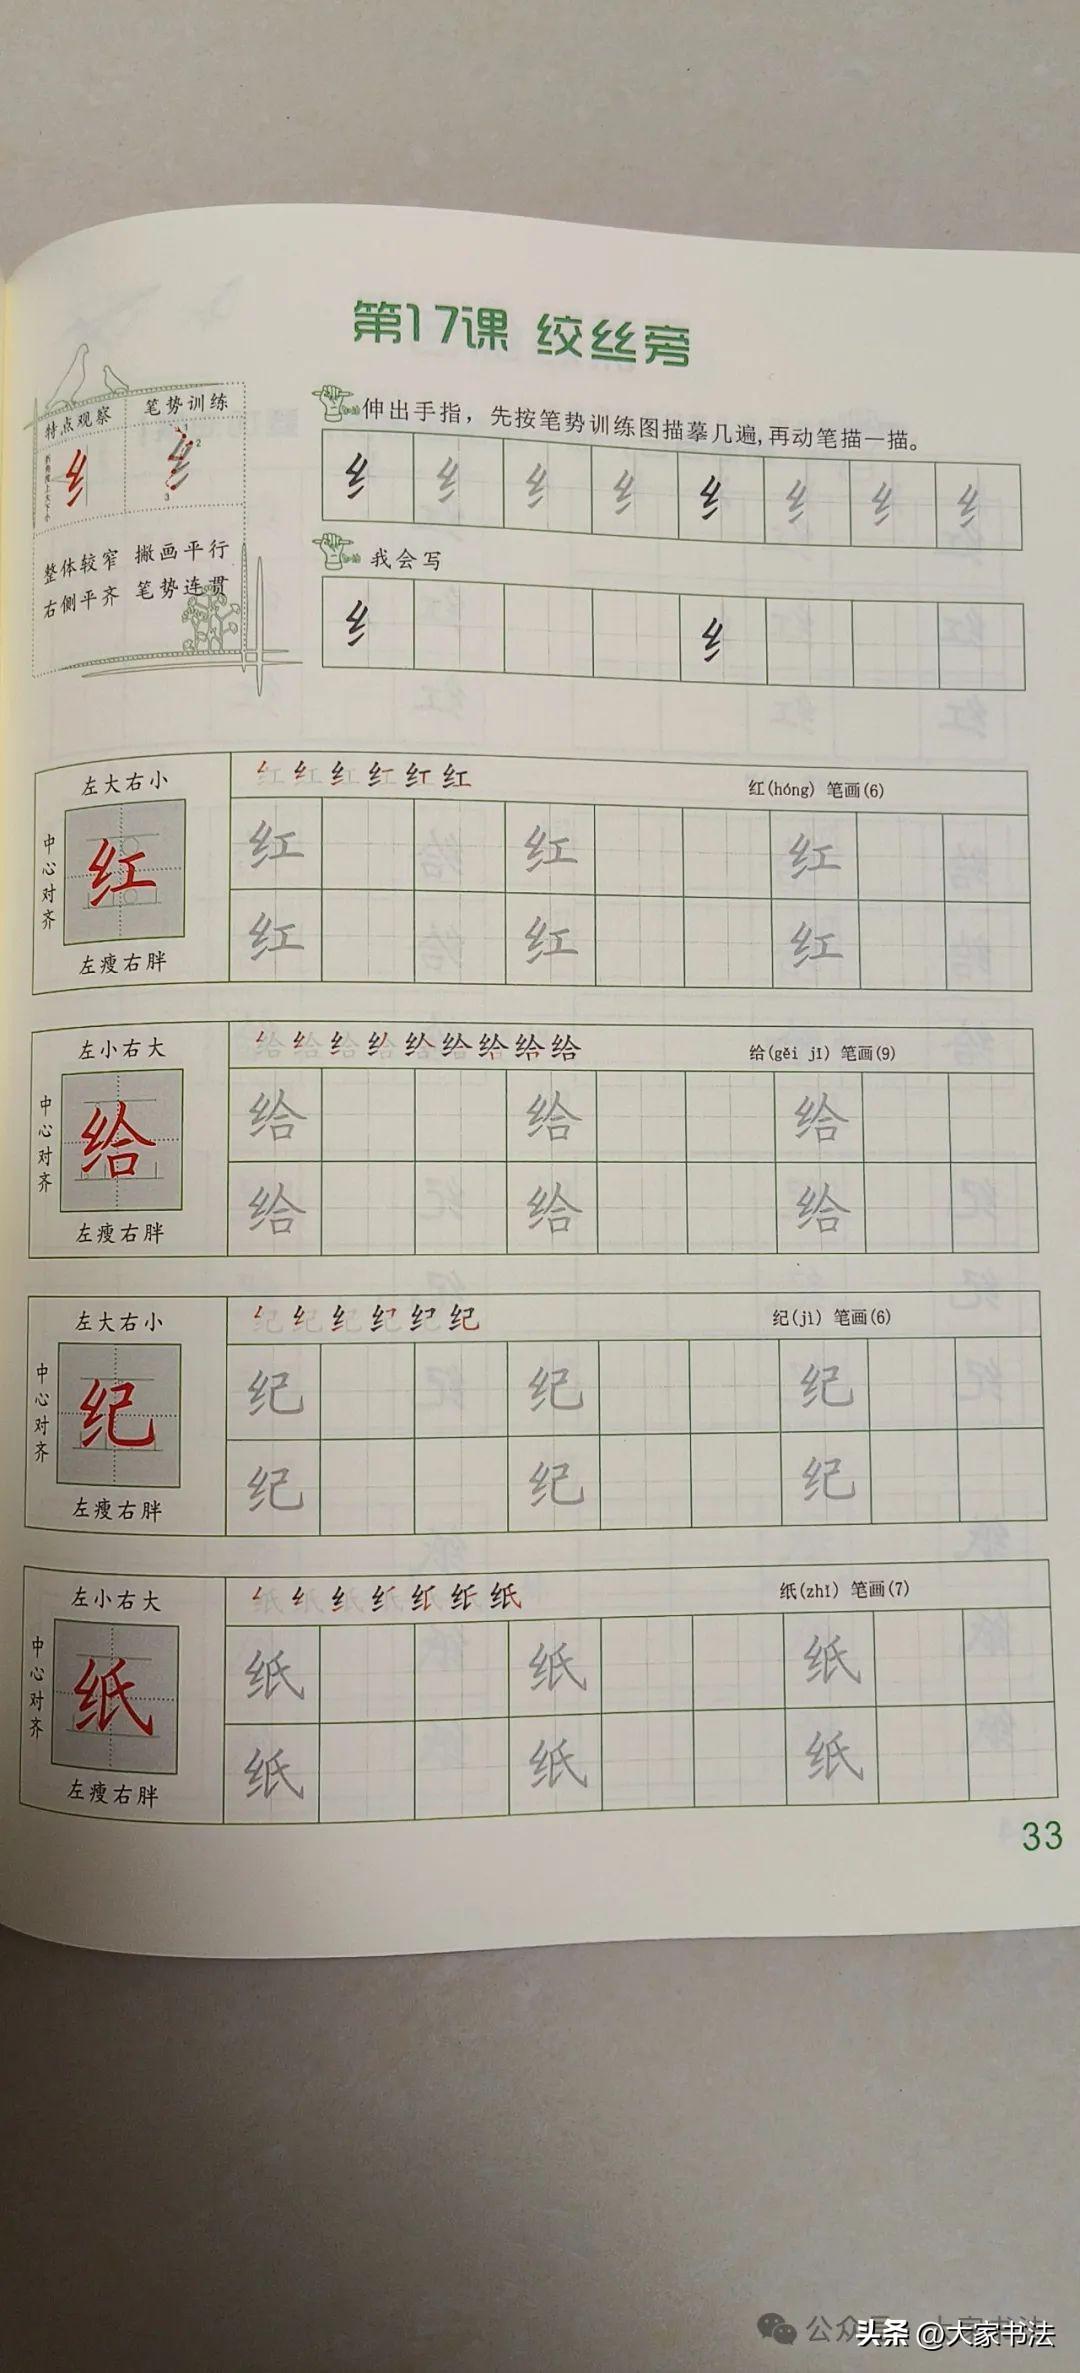 第17课 绞丝旁
特点观察 笔势训练
纟
折角度上大下小
1
2
3
整体较窄 撇画平行
右侧平齐 笔势连贯
伸出手指，先按笔势训练图描摹几遍,再动笔描一描。
纟 纟 纟 纟 纟 纟 纟 纟
我会写
纟 纟
左大右小
中心对齐
红
左瘦右胖
红(hóng) 笔画(6)
红 红 红
红 红 红
左小右大
中心对齐
给
左瘦右胖
给(gěi jǐ) 笔画(9)
给 给 给
给 给 给
左大右小
中心对齐
纪
左瘦右胖
纪(jì) 笔画(6)
纪 纪 纪
纪 纪 纪
左小右大
中心对齐
纸
左瘦右胖
纸(zhǐ) 笔画(7)
纸 纸 纸
纸 纸 纸
33
头条 @大家书法